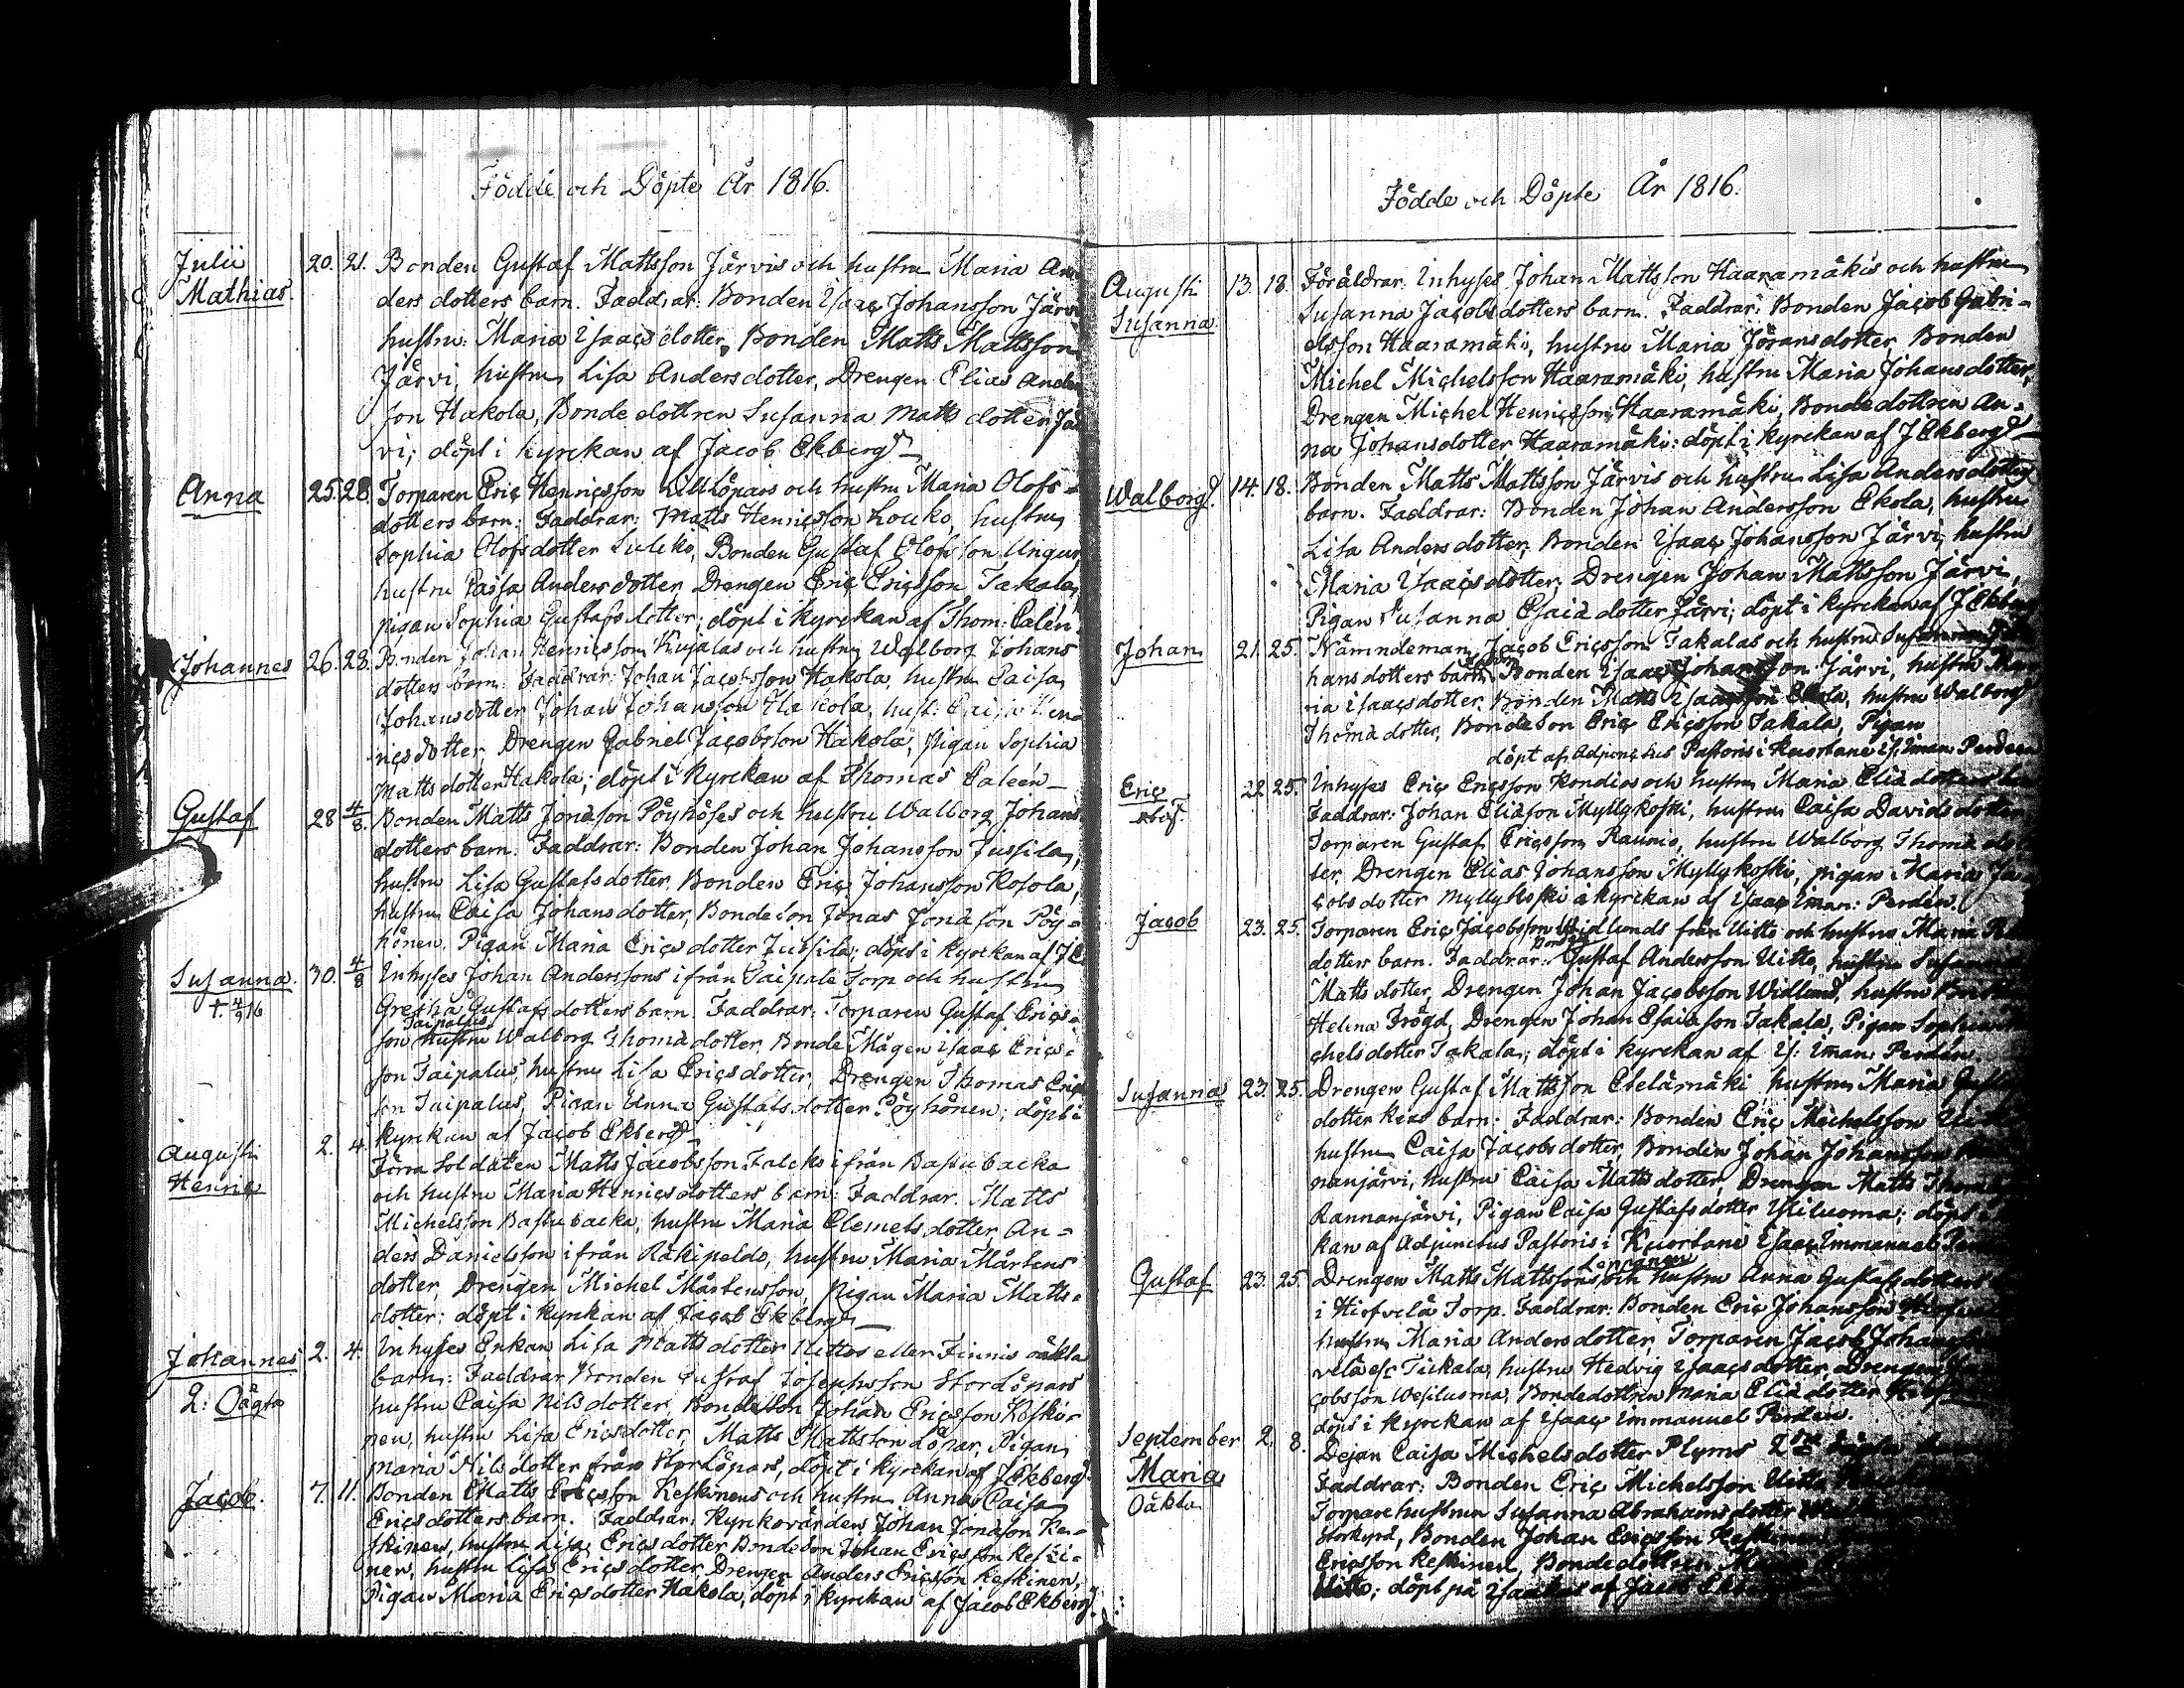 Födde och Döpte År 1816.
Julii 20. 21. Bonden Gustaf Mattsson Järvis och hustru Maria An
Mathias. ders dotters barn. Faddrar: Bonden Isaac Johansson Järvi
hustru: Maria Isaacsdotter, Bonden Matts Mattsson
Järvi, hustru Lisa Andersdotter, Drengen Elias Anders
son Hakola, Bonde dottren Susanna Matts dotter Jär
vi; döpt i kyrckan af Jacob Ekberg
Anna 25. 28. Torparen Eric Henricsson Lillköpars och hustru Maria Olofs-
dotters barn: Faddrar: Matts Henricsson Louko, hustru
Sophia Olofsdotter Luleko, Bonden Gustaf Olofsson Ungur,
hustru Caisa Andersdotter, Drengen Eric Ericsson Takala,
pigan Sophia Gustafsdotter; döpt i kyrckan af Thom: Calén
Johannes 26. 28. Bonden Johan Henricsson Kujalas och hustru Walborg Johans
dotters barn: Faddrar: Johan Jacobsson Hakola, hustru Caisa
Johansdotter Johan Johansson Hakola, hust: Caisa Hen-
ricsdotter, Drengen Gabriel Jacobsson Hakola, Pigan Sophia
Mattsdotter Hakola; döpt i Kyrckan af Thomas Caleén
Gustaf 28 4/8. Bonden Matts Jonasson Pöyhöses och hustru Walborg Johans
dotters barn: Faddrar: Bonden Johan Johansson Jussila,
hustru Lisa Gustafsdotter, Bonden Eric Johansson Kosola,
hustru Caisa Johansdotter, Bondeson Jonas Jonasson Pöy-
hönen, Pigan Maria Ericsdotter Jussila; döpt i kyrckan af J E
Susanna. 30. 4/8 Inhyses Johan Anderssons ifrån Taipale Torp och hustru
+ 4/9 16 Gretha Gustafsdotters barn. Faddrar: Torparen Gustaf Erics-
Taipalus
son hustru Walborg Thomadotter, Bonde Mågen Isaac Erics-
son Taipalus, hustru Lisa Ericsdotter, Drengen Thomas Erics
son Taipalus, Pigan Anna Gustafsdotter Pöyhönen; döpt i
kyrckan af Jacob Ekberg
Augusti 2. 4. Förra Soldaten Matts Jacobsson Falcks ifrån Bastubacka
Henric och hustru Maria Henricsdotters barn: Faddrar: Matts
Michelsson Bastubacka, hustru Maria Clemetsdotter, An-
ders Danielsson ifrån Räkipeldo, hustru Maria Mårtens
dotter, Drengen Michel Mårtensson, Pigan Maria Matts-
dotter: döpt i kyrckan af Jacob Ekberg
Johannes 2. 4. Inhyses Enkan Lisa Mattsdotter Uittos eller Finnis oäkta
2: Oägta barn: Faddrar Bonden Gustaf Josephsson Storlöpars
hustru Caisa Nilsdotter, Bondeson Johan Ericsson Keski-
nen, hustru Lisa Ericsdotter, Matts Mattsson Löpar, Pigan
Maria Nilsdotter från Storlöpars, döpt i kyrckan af J Ekberg.
Jacob. 7. 11. Bonden Matts Ericsson Keskinens och hustru Anna Caisa
Ericsdotters barn. Faddrar: Kyrkovärden Johan Jonasson Ke-
skinen, hustru Lisa Ericsdotter, Bondeson Johan Ericsson Keski-
nen, hustru Lisa Ericsdotter, Drengen Anders Ericsson Keskinen,
Pigan Maria Ericsdotter Hakola, döpt i kyrckan af Jacob Ekberg.
Födde och Döpte År 1816.
Augusti 13. 18. Föräldrar Inhyses Johan Mattsson Haaramäkis och hustru
Susanna Susanna Jacobsdotters barn. Faddrar: Bonden Jacob Gabri-
elsson Haaramäki, hustru Maria Jöransdotter, Bonden
Michel Michelsson Haaramäki, hustru Maria Johansdotter,
Drengen Michel Henricsson Haaramäki, Bondedottren An-
na Johansdotter Haaramäki: döpt i kyrckan af J Ekberg
Walborg. 14. 18. Bonden Matts Mattsson Järvis och hustru Lisa Andersdotters
barn. Faddrar: Bonden Johan Andersson Ekola, hustru
Lisa Andersdotter, Bonden Isaac Johansson Järvi, hustru
Maria Isaacsdotter, Drengen Johan Mattsson Järvi,
Pigan Susanna Esaiadotter Järvi; döpt i kyrckan af J Ekberg
Johan 21. 25. Nämndeman Jacob Ericsson Takalas och hustru
hansdotters barn Bonden Isaac Johansson Järvi, hustru Ma-
ria Isaacsdotter, Bonden Matts Isaacsson Ekola, hustru Walborg
Thomadotter, Bondeson Eric Ericsson Takala, Pigan
döpt af Adjunctus Pastoris i Kuortane Is: Iman: Perdén
Eric 22 25. Inhyses Eric Ericsson Kondios och hustru Maria Eliadotters
Faddrar: Johan Eliasson Myllykoski, hustru Caisa Davidsdotter
Torparen Gustaf Ericsson Raunio, hustru Walborg Thoma dot
ter, Drengen Elias Johansson Myllykoski, pigan Maria Ja
cobsdotter Myllykoski i kyrckan af Isaac Iman: Perdén.
Jacob 23. 25. Torparen Eric Jacobsson Widlunds från Uitto och hustru Maria
Bonden
dotter barn. Faddrar: Gustaf Andersson Uitto, hustru Susanna
Mattsdotter, Drengen Johan Jacobsson Widlund, hustru
Helena Frögd, Drengen Johan Esaiasson Takala, Pigan Sophia Mi
chelsdotter Takala; döpt i kyrckan af Is: Iman: Perdén.
Susanna 23. 25. Drengen Gustaf Mattsson Etelämäki hustru Maria Gustafs
dotter Reas barn: Faddrar: Bonden Eric Michelsson
hustru Caisa Jacobsdotter, Bonden Johan Johansson
nanjärvi, hustru Caisa Mattsdotter, Drengen Matts Thom
Rannanjärvi, Pigan Caisa Gustafsdotter Ylituoma; döpt i
kan af Adjunctus Pastoris i Kuortane Isaac Immanuel
Gustaf 23. 25. Drengen Matts Mattssons och hustru Anna Gustafsdotters
i Hirfvelä Torp. Faddrar: Bonden Eric Johansson
hustru Maria Andersdotter, Torparen Jacob Johansson
velä Tickala, hustru Hedvig Isaacsdotter, Drengen
cobsson Wesiluoma, Bondedottren Maria Eliadotter
döpt i kyrckan af Isaac Immanuel Perdén.
September 2. 8. Pejan Caisa Michelsdotter Plyms
Maria Faddrar: Bonden Eric Michelsson Uitto
Oäkta Torpare hustrun Susanna Abrahamsdotter
Storkyrå, Bonden Johan Ericsson Keskinen
Ericsson Keskinen, Bondedottren
Uitto; döpt på af Jacob